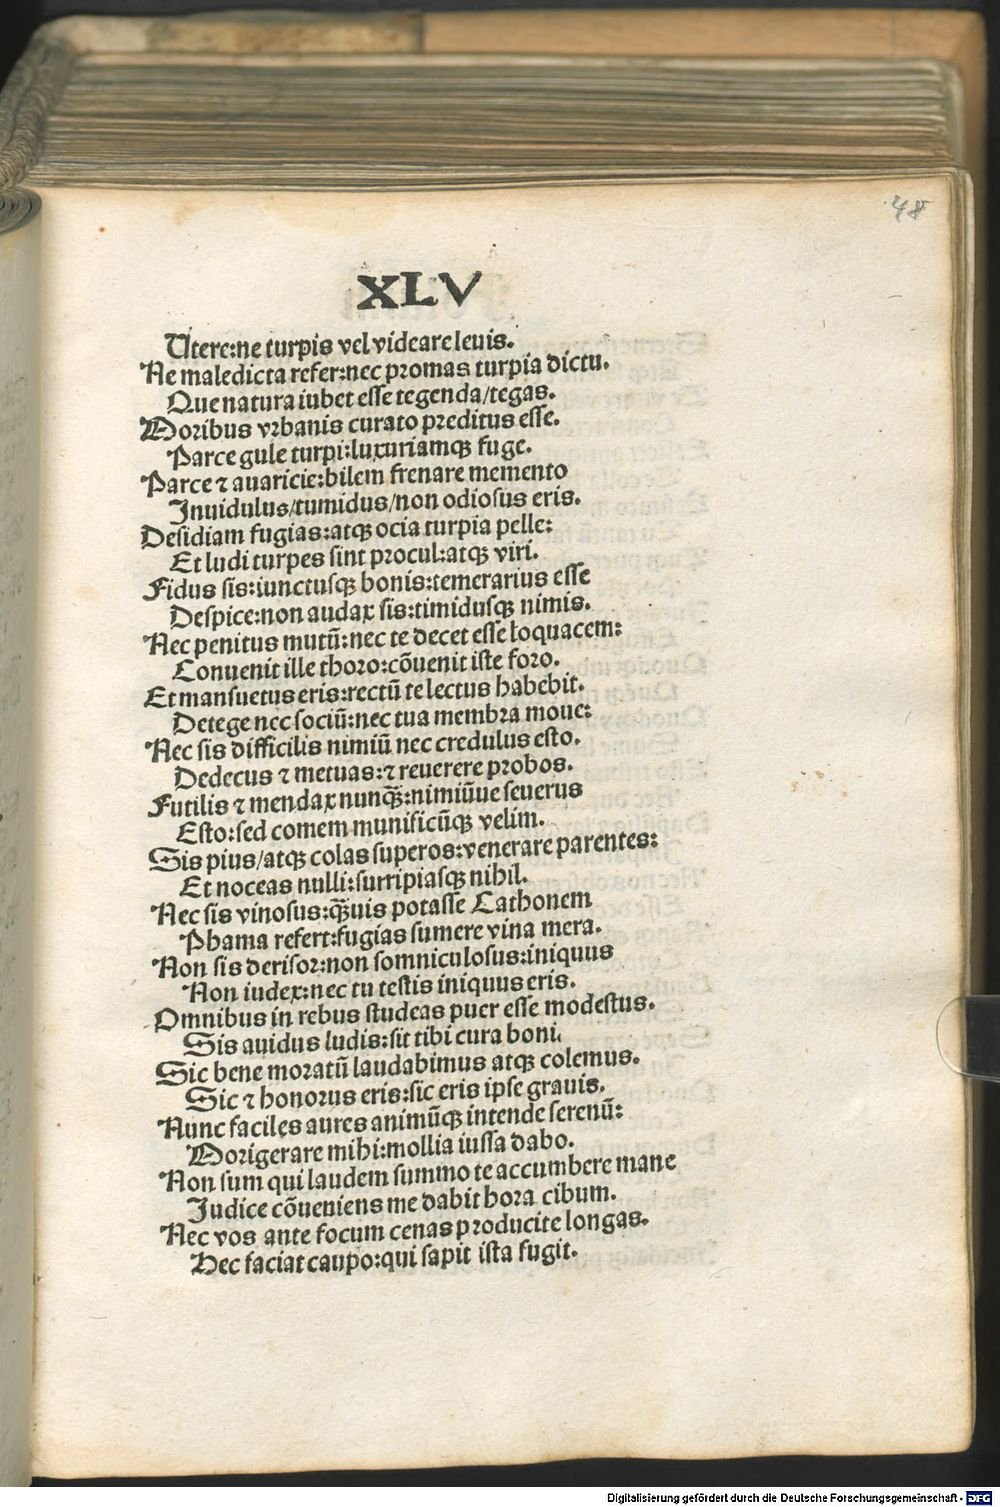 48
XLV
Utere:ne turpis vel videare leuis.
Ne maledicta refer:nec promas turpia dictu.
Que natura iubet esse tegenda/tegas.
Moribus vrbanis curato preditus esse.
Parce gule turpi:luxuriamqꝫ fuge.
Parce ⁊ auaricie:bilem frenare memento
Inuidulus/tumidus/non odiosus eris.
Desidiam fugias:atqꝫ ocia turpia pelle:
Et ludi turpes sint procul:atqꝫ viri.
Fidus sis:iunctusqꝫ bonis:temerarius esse
Despice:non audax sis:timidusqꝫ nimis.
Nec penitus mutū:nec te decet esse loquacem:
Conuenit ille thoro:cōuenit iste foro.
Et mansuetus eris:rectū te lectus habebit.
Detege nec sociū:nec tua membra moue:
Nec sis difficilis nimiū nec credulus esto.
Dedecus ⁊ metuas:⁊ reuerere probos.
Futilis ⁊ mendax nunqꝫ̄:nimiūue seuerus
Esto:sed comem munificūqꝫ velim.
Sis pius/atqꝫ colas superos:venerare parentes:
Et noceas nulli:surripiasqꝫ nihil.
Nec sis vinosus:qꝫ̄uis potasse Cathonem
Phama refert:fugias sumere vina mera.
Non sis derisor:non somniculosus:iniquus
Non iudex:nec tu testis iniquus eris.
Omnibus in rebus studeas puer esse modestus.
Sis auidus ludis:sit tibi cura boni.
Sic bene moratū laudabimus atqꝫ colemus.
Sic ⁊ honorus eris:sic eris ipse grauis.
Nunc faciles aures animūqꝫ intende serenū:
Morigerare mihi:mollia iussa dabo.
Non sum qui laudem summo te accumbere mane
Iudice cōueniens me dabit hora cibum.
Nec vos ante focum cenas producite longas.
Hec faciat caupo:qui sapit ista fugit.
Digitalisierung gefördert durch die Deutsche Forschungsgemeinschaft - DFG